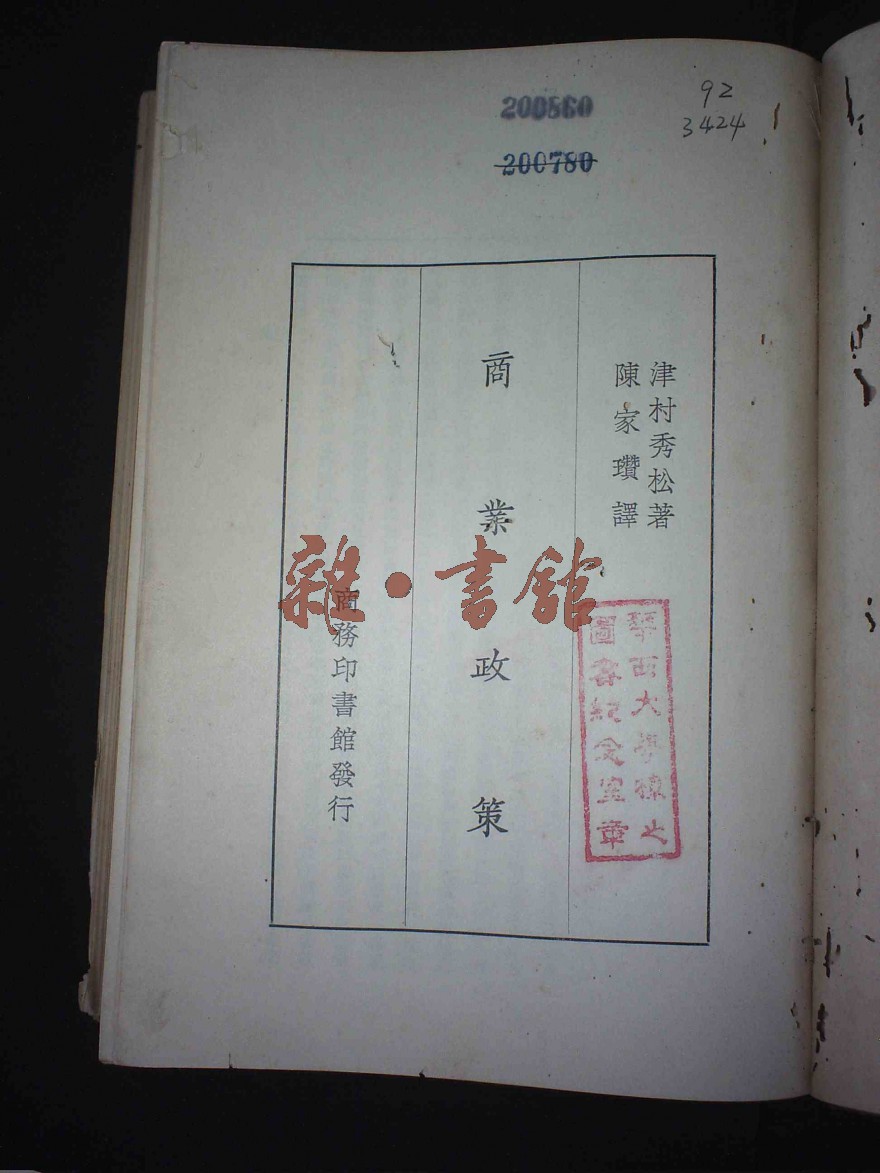 200560
200780
92
3424
津村秀松著
陳家瓚譯
商業政策
商務印書館發行
雜·書館
大學
圖書紀念室章